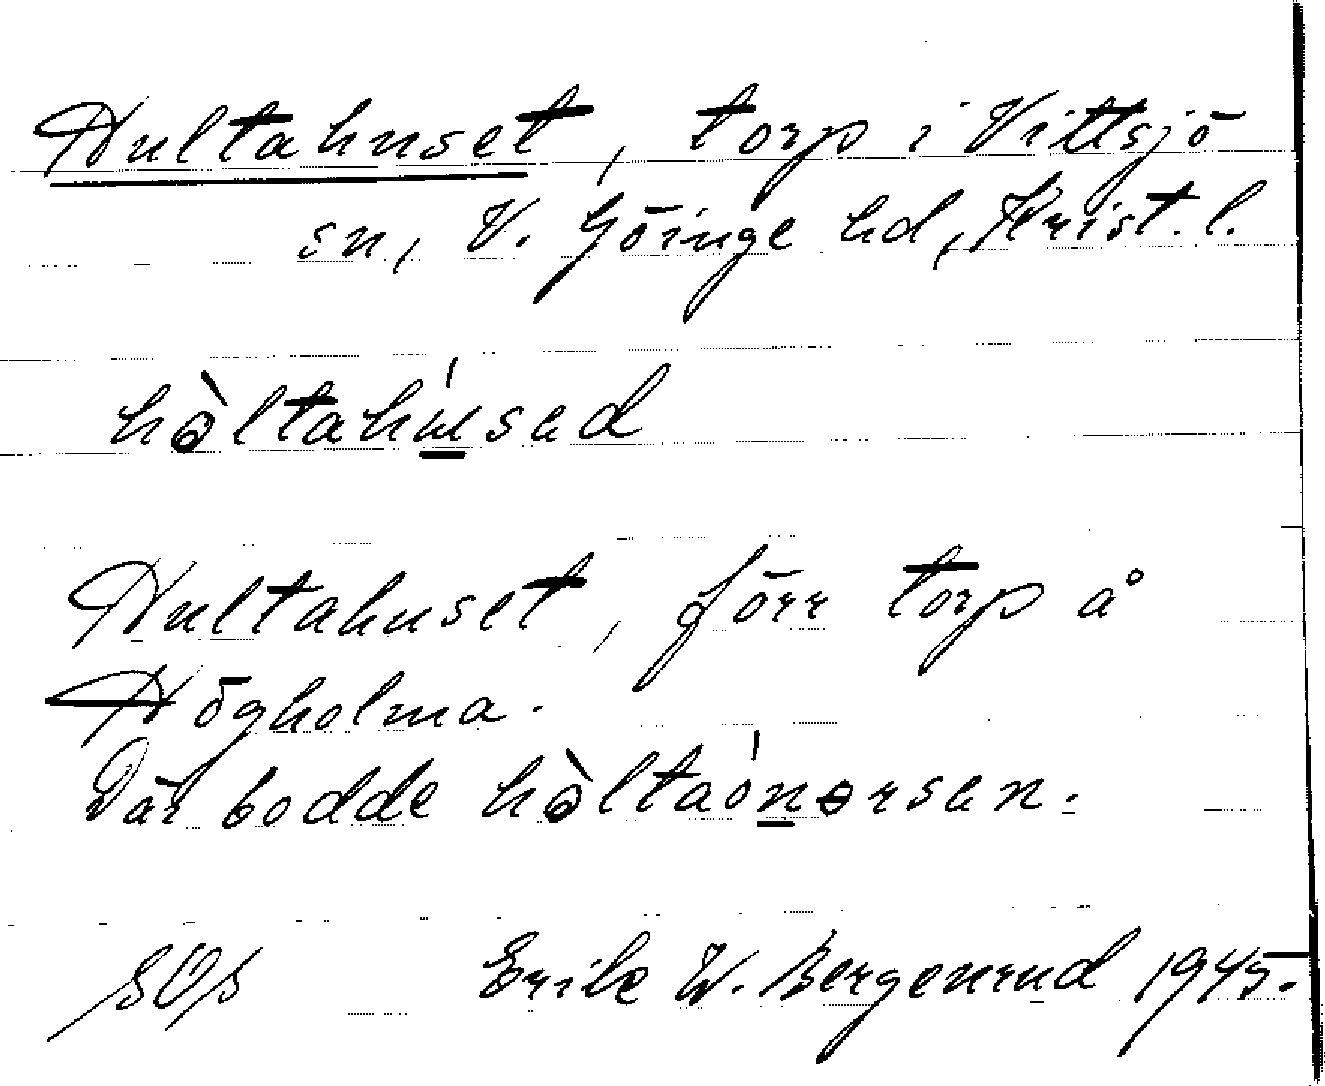 Hultahuset, torp i Vittsjö
sn, V. Göinge hd, Krist. l.
hòltahúsad
Hultahuset, förr torp å
Högholma.
Där bodde hòltaónərsan.
SOS Erik W. Bergenrud 1945.